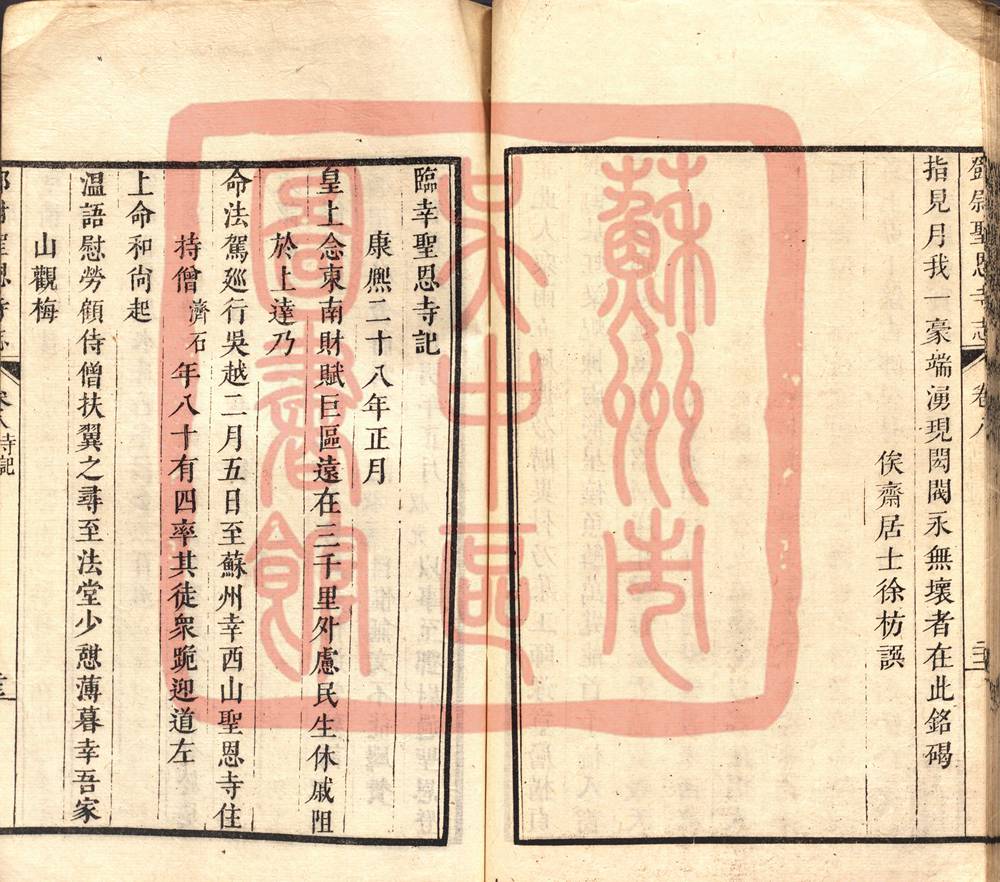 鄧尉聖恩寺志 卷八
指見月我一豪端湧現閎閣永無壞者在此銘碣
俟齋居士徐枋譔
臨幸聖恩寺記
康熙二十八年正月
皇上念東南財賦巨區遠在三千里外慮民生休戚阻
於上達乃
命法駕巡行吳越二月五日至蘇州幸西山聖恩寺住
持僧濟石年八十有四率其徒衆跪迎道左
上命和尙起
溫語慰勞顧侍僧扶翼之尋至法堂少憇薄暮幸吾家
山觀梅
卷八寺記
蘇州市
吳中區
圖書館